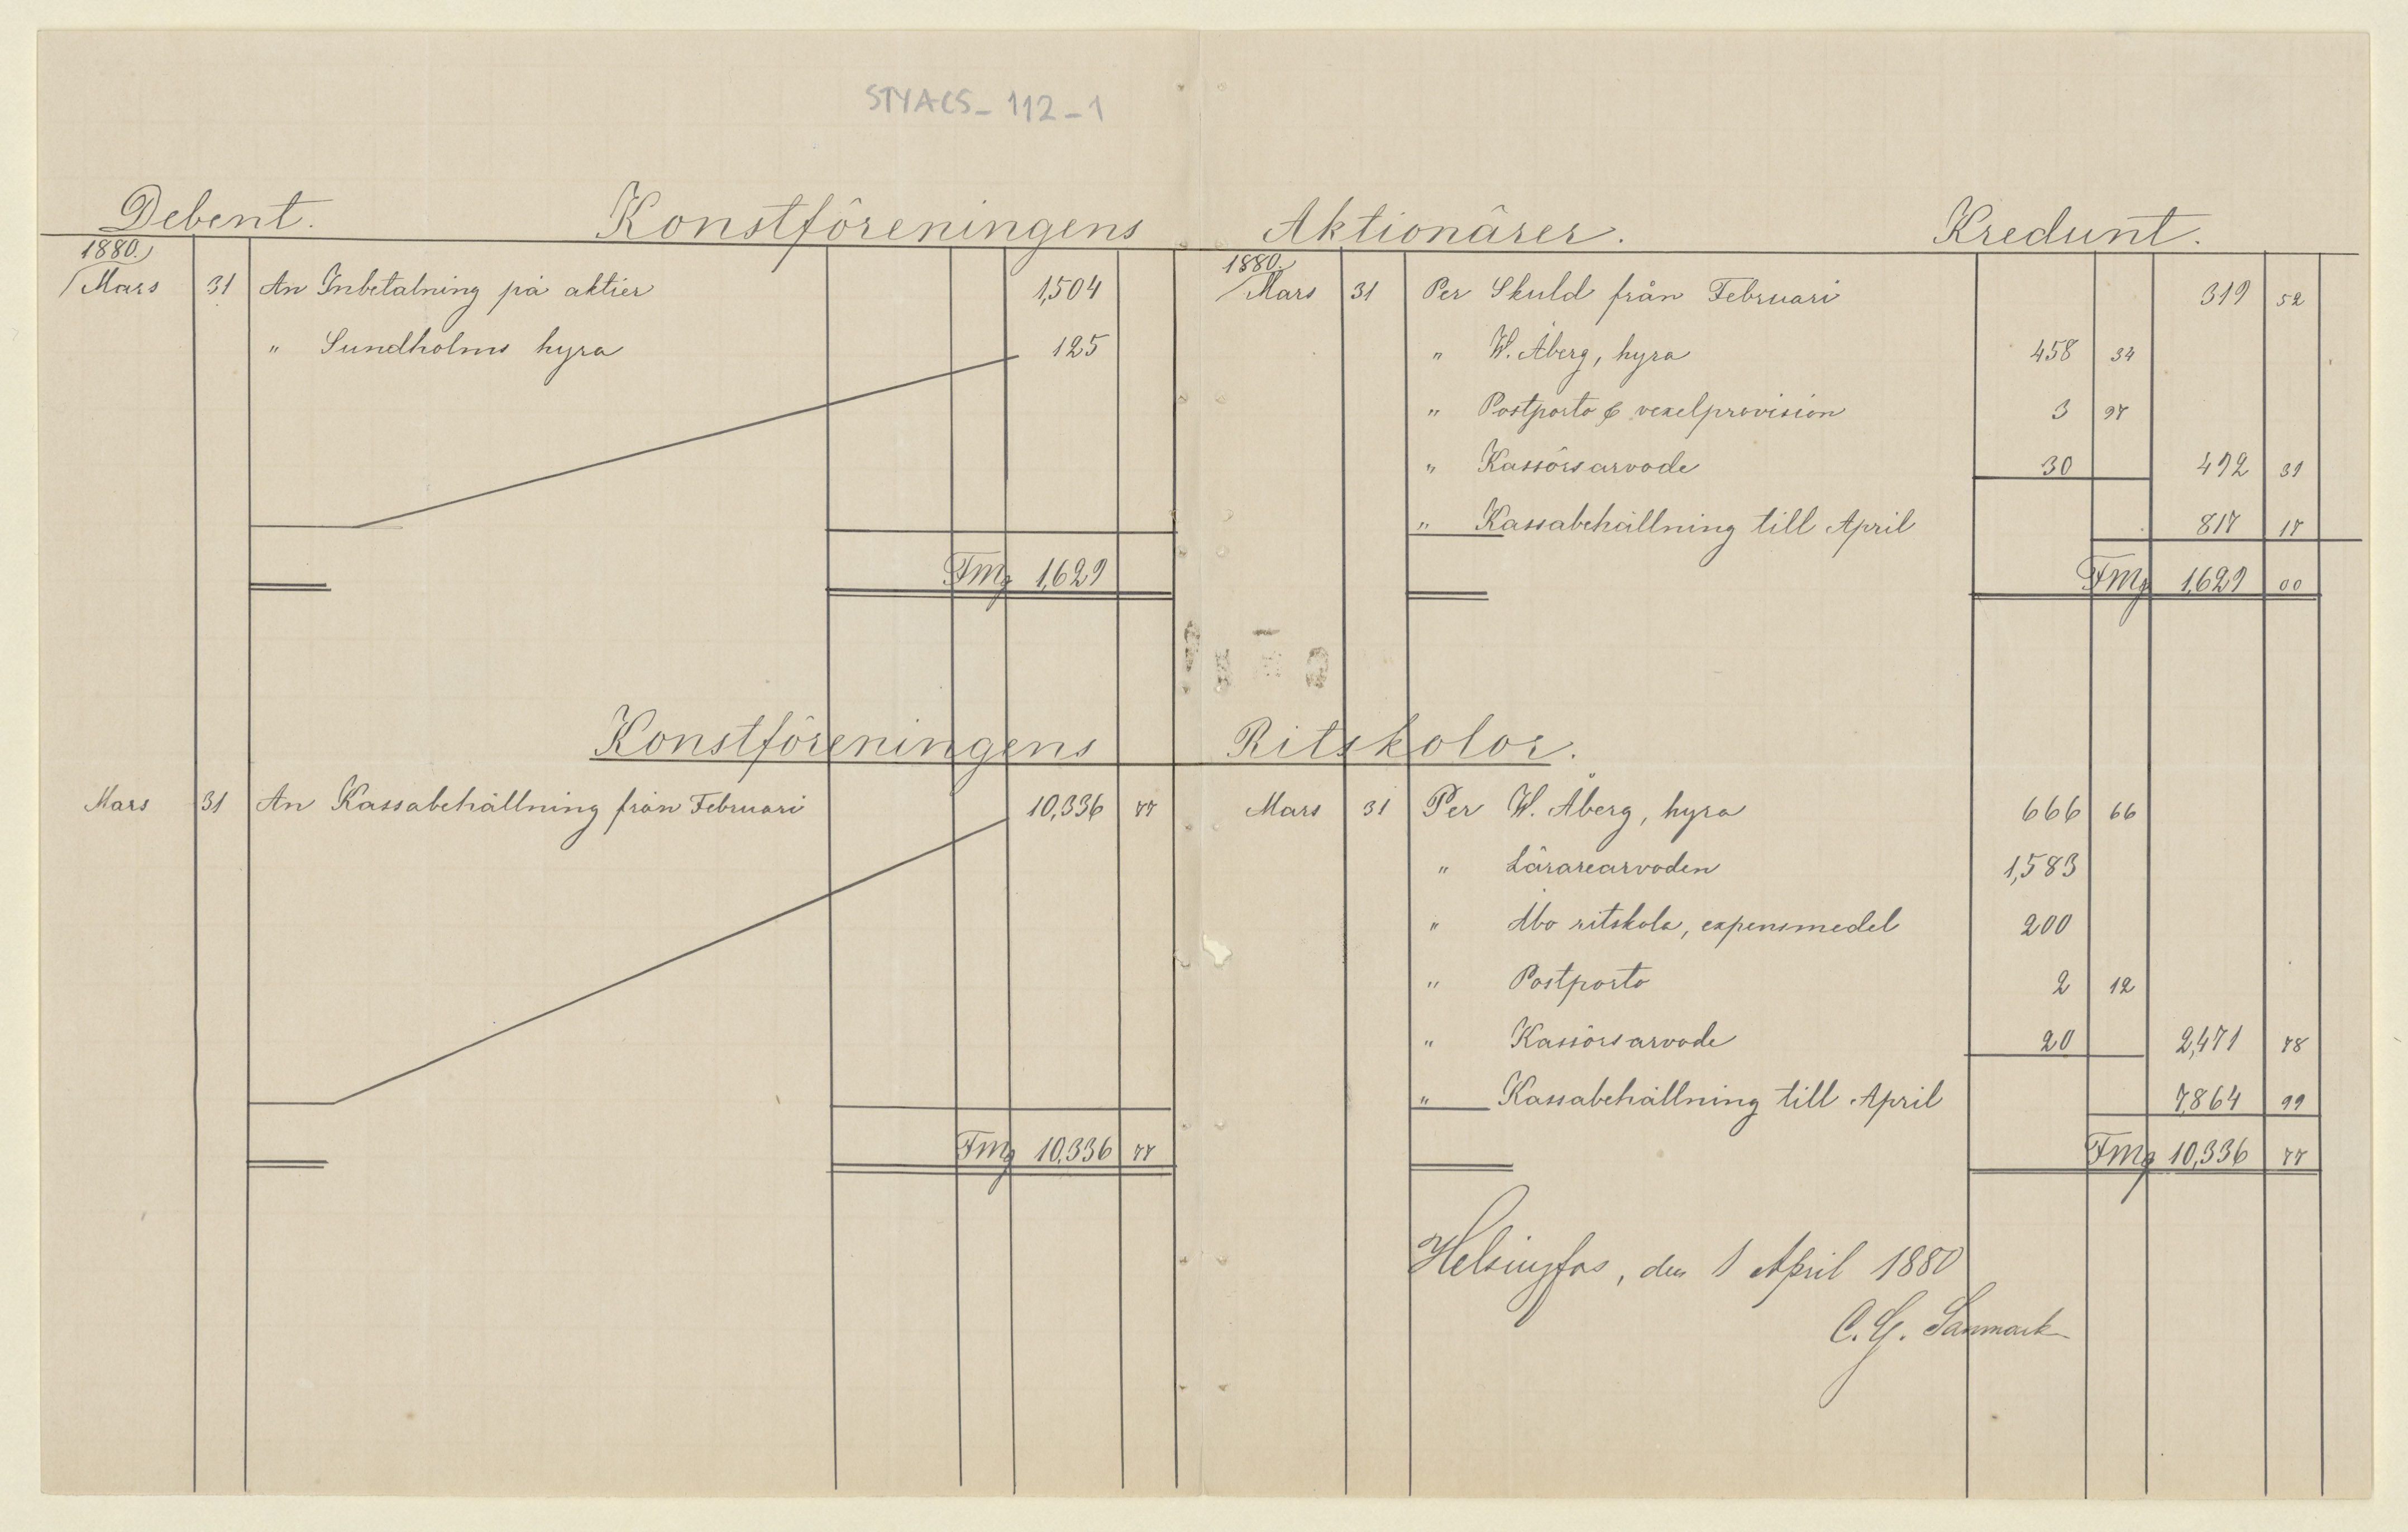 STYACS_112_1
Debent. Konstföreningens Aktionärer. Kredunt.
1880.
Mars 31 An Inbetalning på aktier 1,504
" Sundholms hyra 125
Fmg 1,629
1880.
Mars 31 Per Skuld från Februari 319 52
" W. Åberg, hyra 458 34
" Postporto & vexelprovision 3 97
" Kassörsarvode 30 492 31
" Kassabehållning till April 817 17
Fmg 1,629 00
Konstföreningens Ritskolor.
Mars 31 An Kassabehållning från Februari 10,336 77
Fmg 10,336 77
Mars 31 Per W. Åberg, hyra 666 66
" Lärarearvoden 1,583
" Åbo ritskola, expensmedel 200
" Postporto 2 12
" Kassörsarvode 20 2,471 78
" Kassabehållning till April 7,864 99
Fmg 10,336 77
Helsingfors, den 1 April 1880
C. G. Sanmark